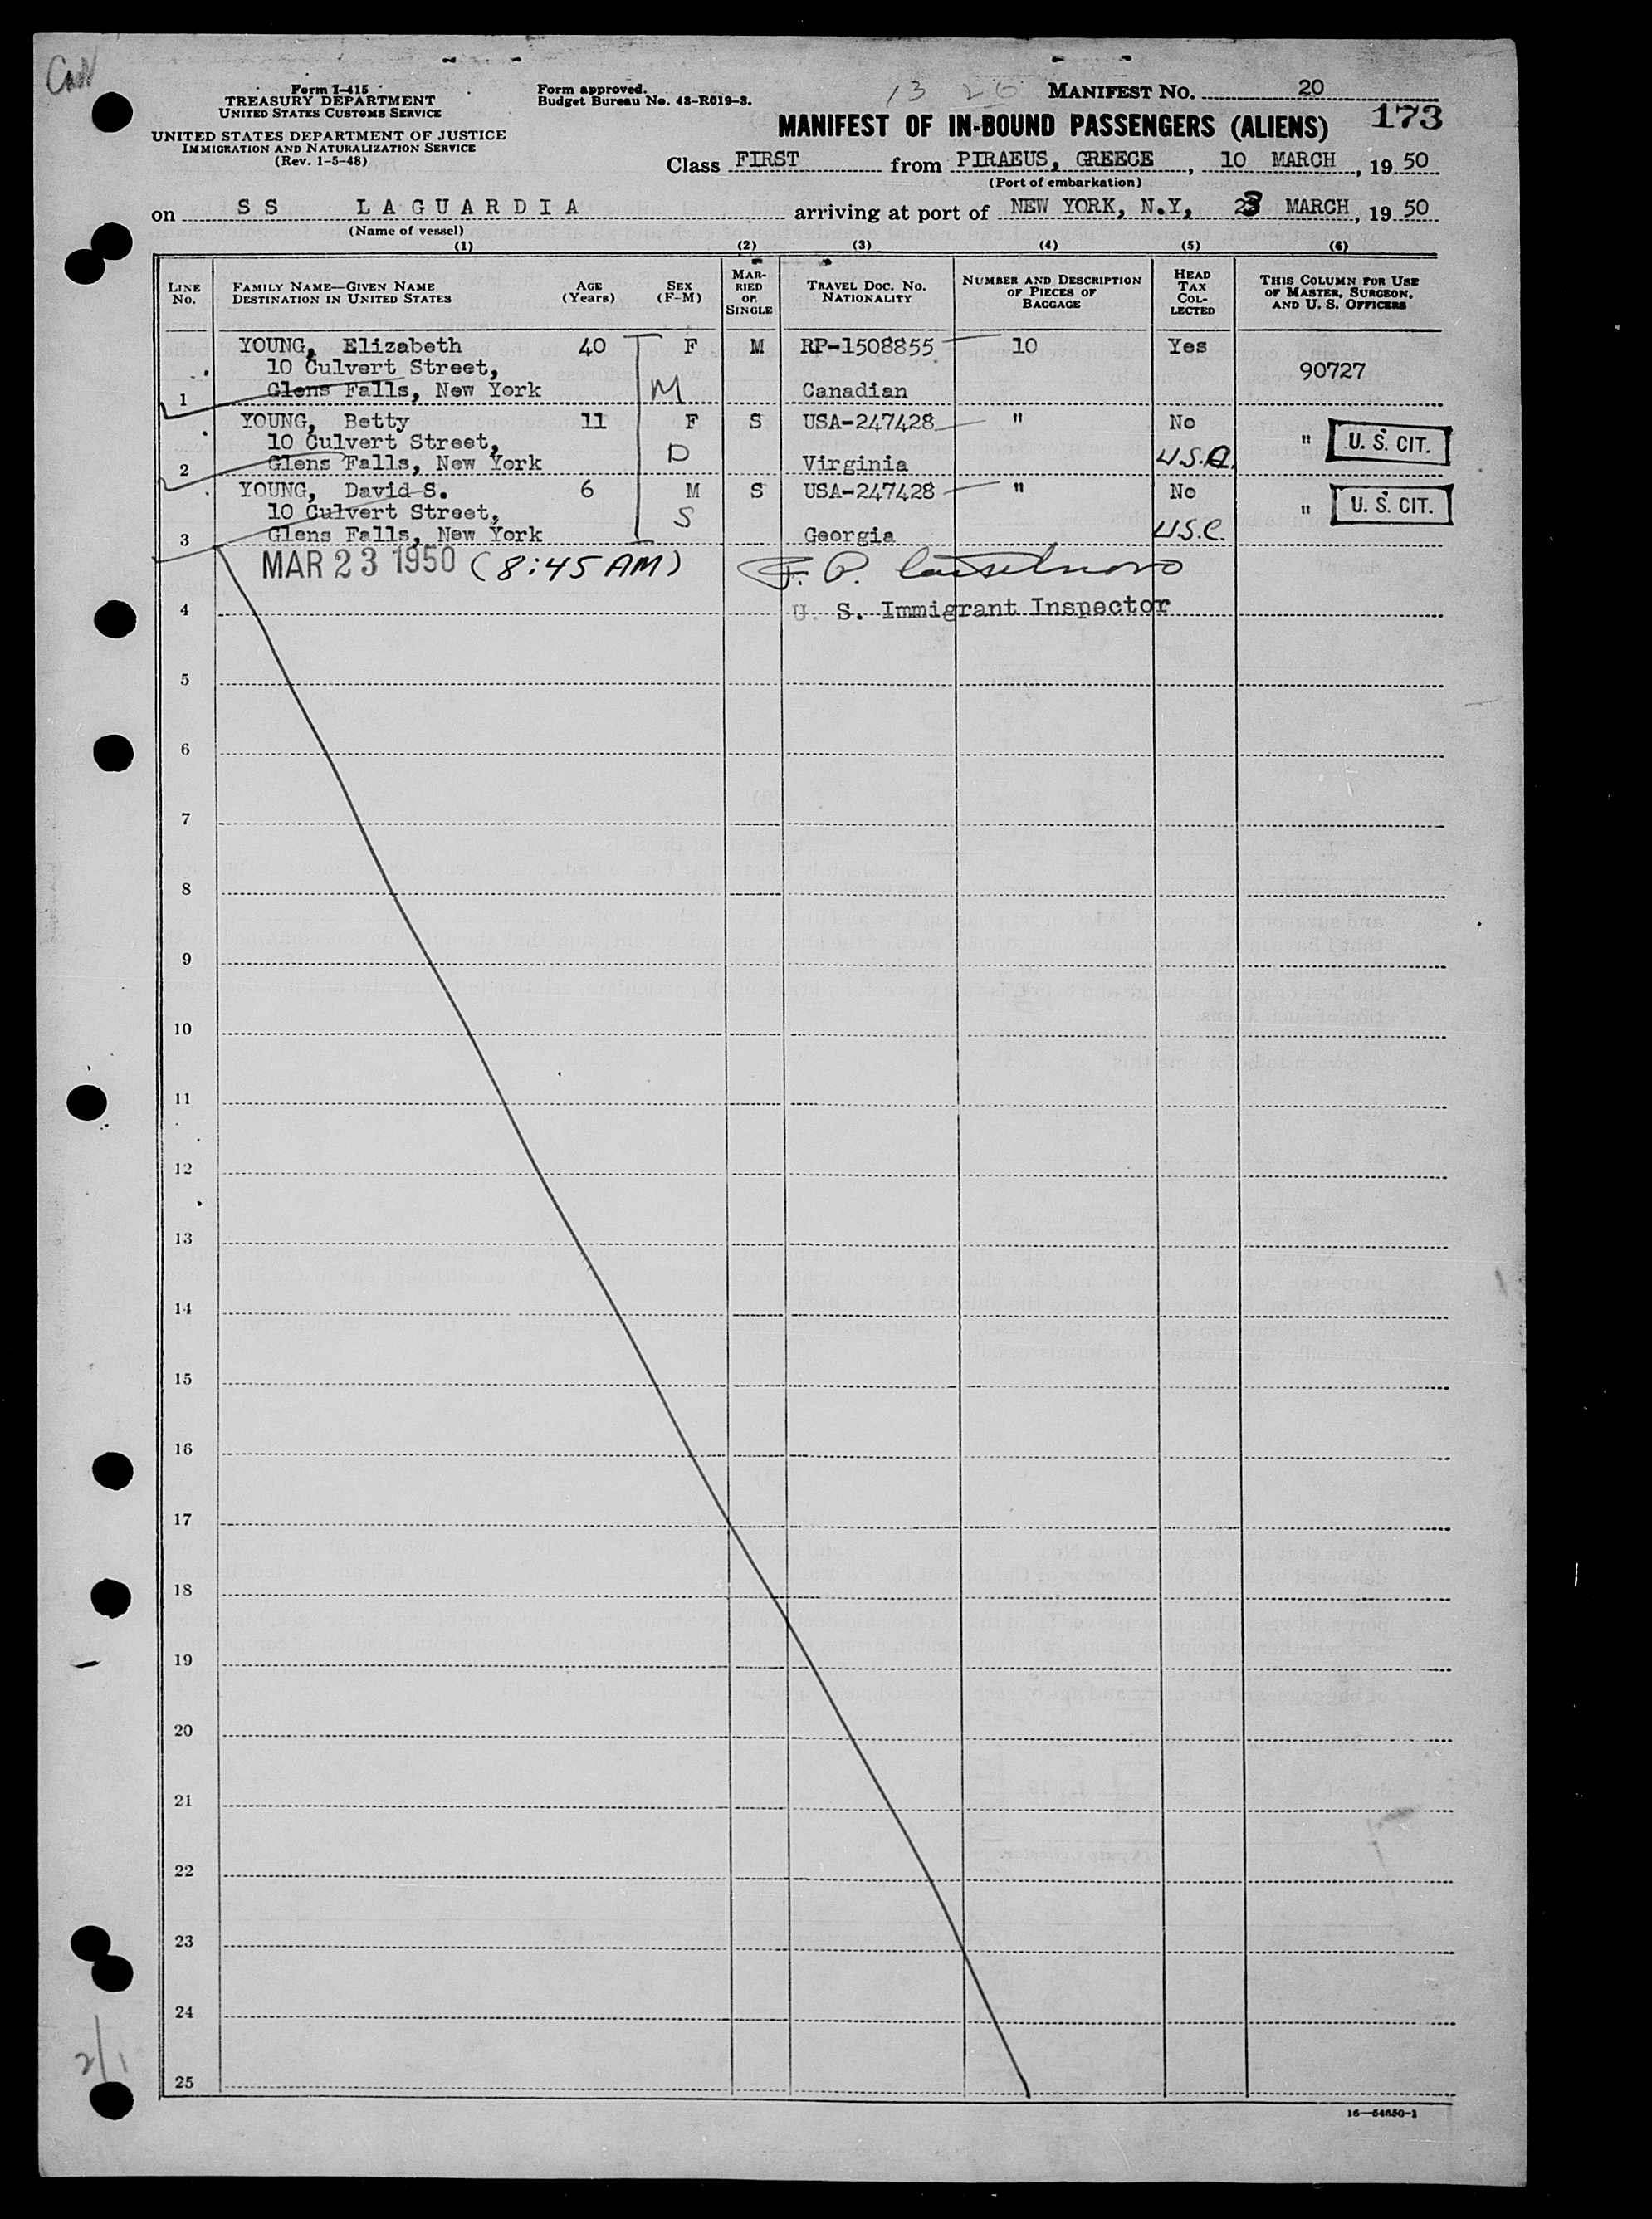 Form I-415
TREASURY DEPARTMENT
UNITED STATES CUSTOMS SERVICE
UNITED STATES DEPARTMENT OF JUSTICE
IMMIGRATION AND NATURALIZATION SERVICE
(Rev. 1-5-48)
Form approved.
Budget Bureau No. 43-R019-3.
13 26
MANIFEST No. 20
173
MANIFEST OF IN-BOUND PASSENGERS (ALIENS)
Class FIRST from PIRAEUS, GREECE, 10 MARCH, 19 50
(Port of embarkation)
on SS LAGUARDIA arriving at port of NEW YORK, N.Y, 23 MARCH, 19 50
(Name of vessel)
(1) (2) (3) (4) (5) (6)
LINE No. FAMILY NAME—GIVEN NAME DESTINATION IN UNITED STATES AGE (Years) SEX (F-M) MARRIED OR SINGLE TRAVEL DOC. NO. NATIONALITY NUMBER AND DESCRIPTION OF PIECES OF BAGGAGE HEAD TAX COLLECTED THIS COLUMN FOR USE OF MASTER, SURGEON, AND U. S. OFFICERS
YOUNG, Elizabeth 40 F M RP-1508855 10 Yes
10 Culvert Street, 90727
1 Glens Falls, New York M Canadian
YOUNG, Betty 11 F S USA-247428 " No
10 Culvert Street, " U. S. CIT.
2 Glens Falls, New York D Virginia U.S.C.
YOUNG, David S. 6 M S USA-247428 " No
10 Culvert Street, S " U. S. CIT.
3 Glens Falls, New York Georgia U.S.C.
MAR 23 1950 (8:45 AM)
4 U. S. Immigrant Inspector
5
6
7
8
9
10
11
12
13
14
15
16
17
18
19
20
21
22
23
24
25
2/1
16—54650-1